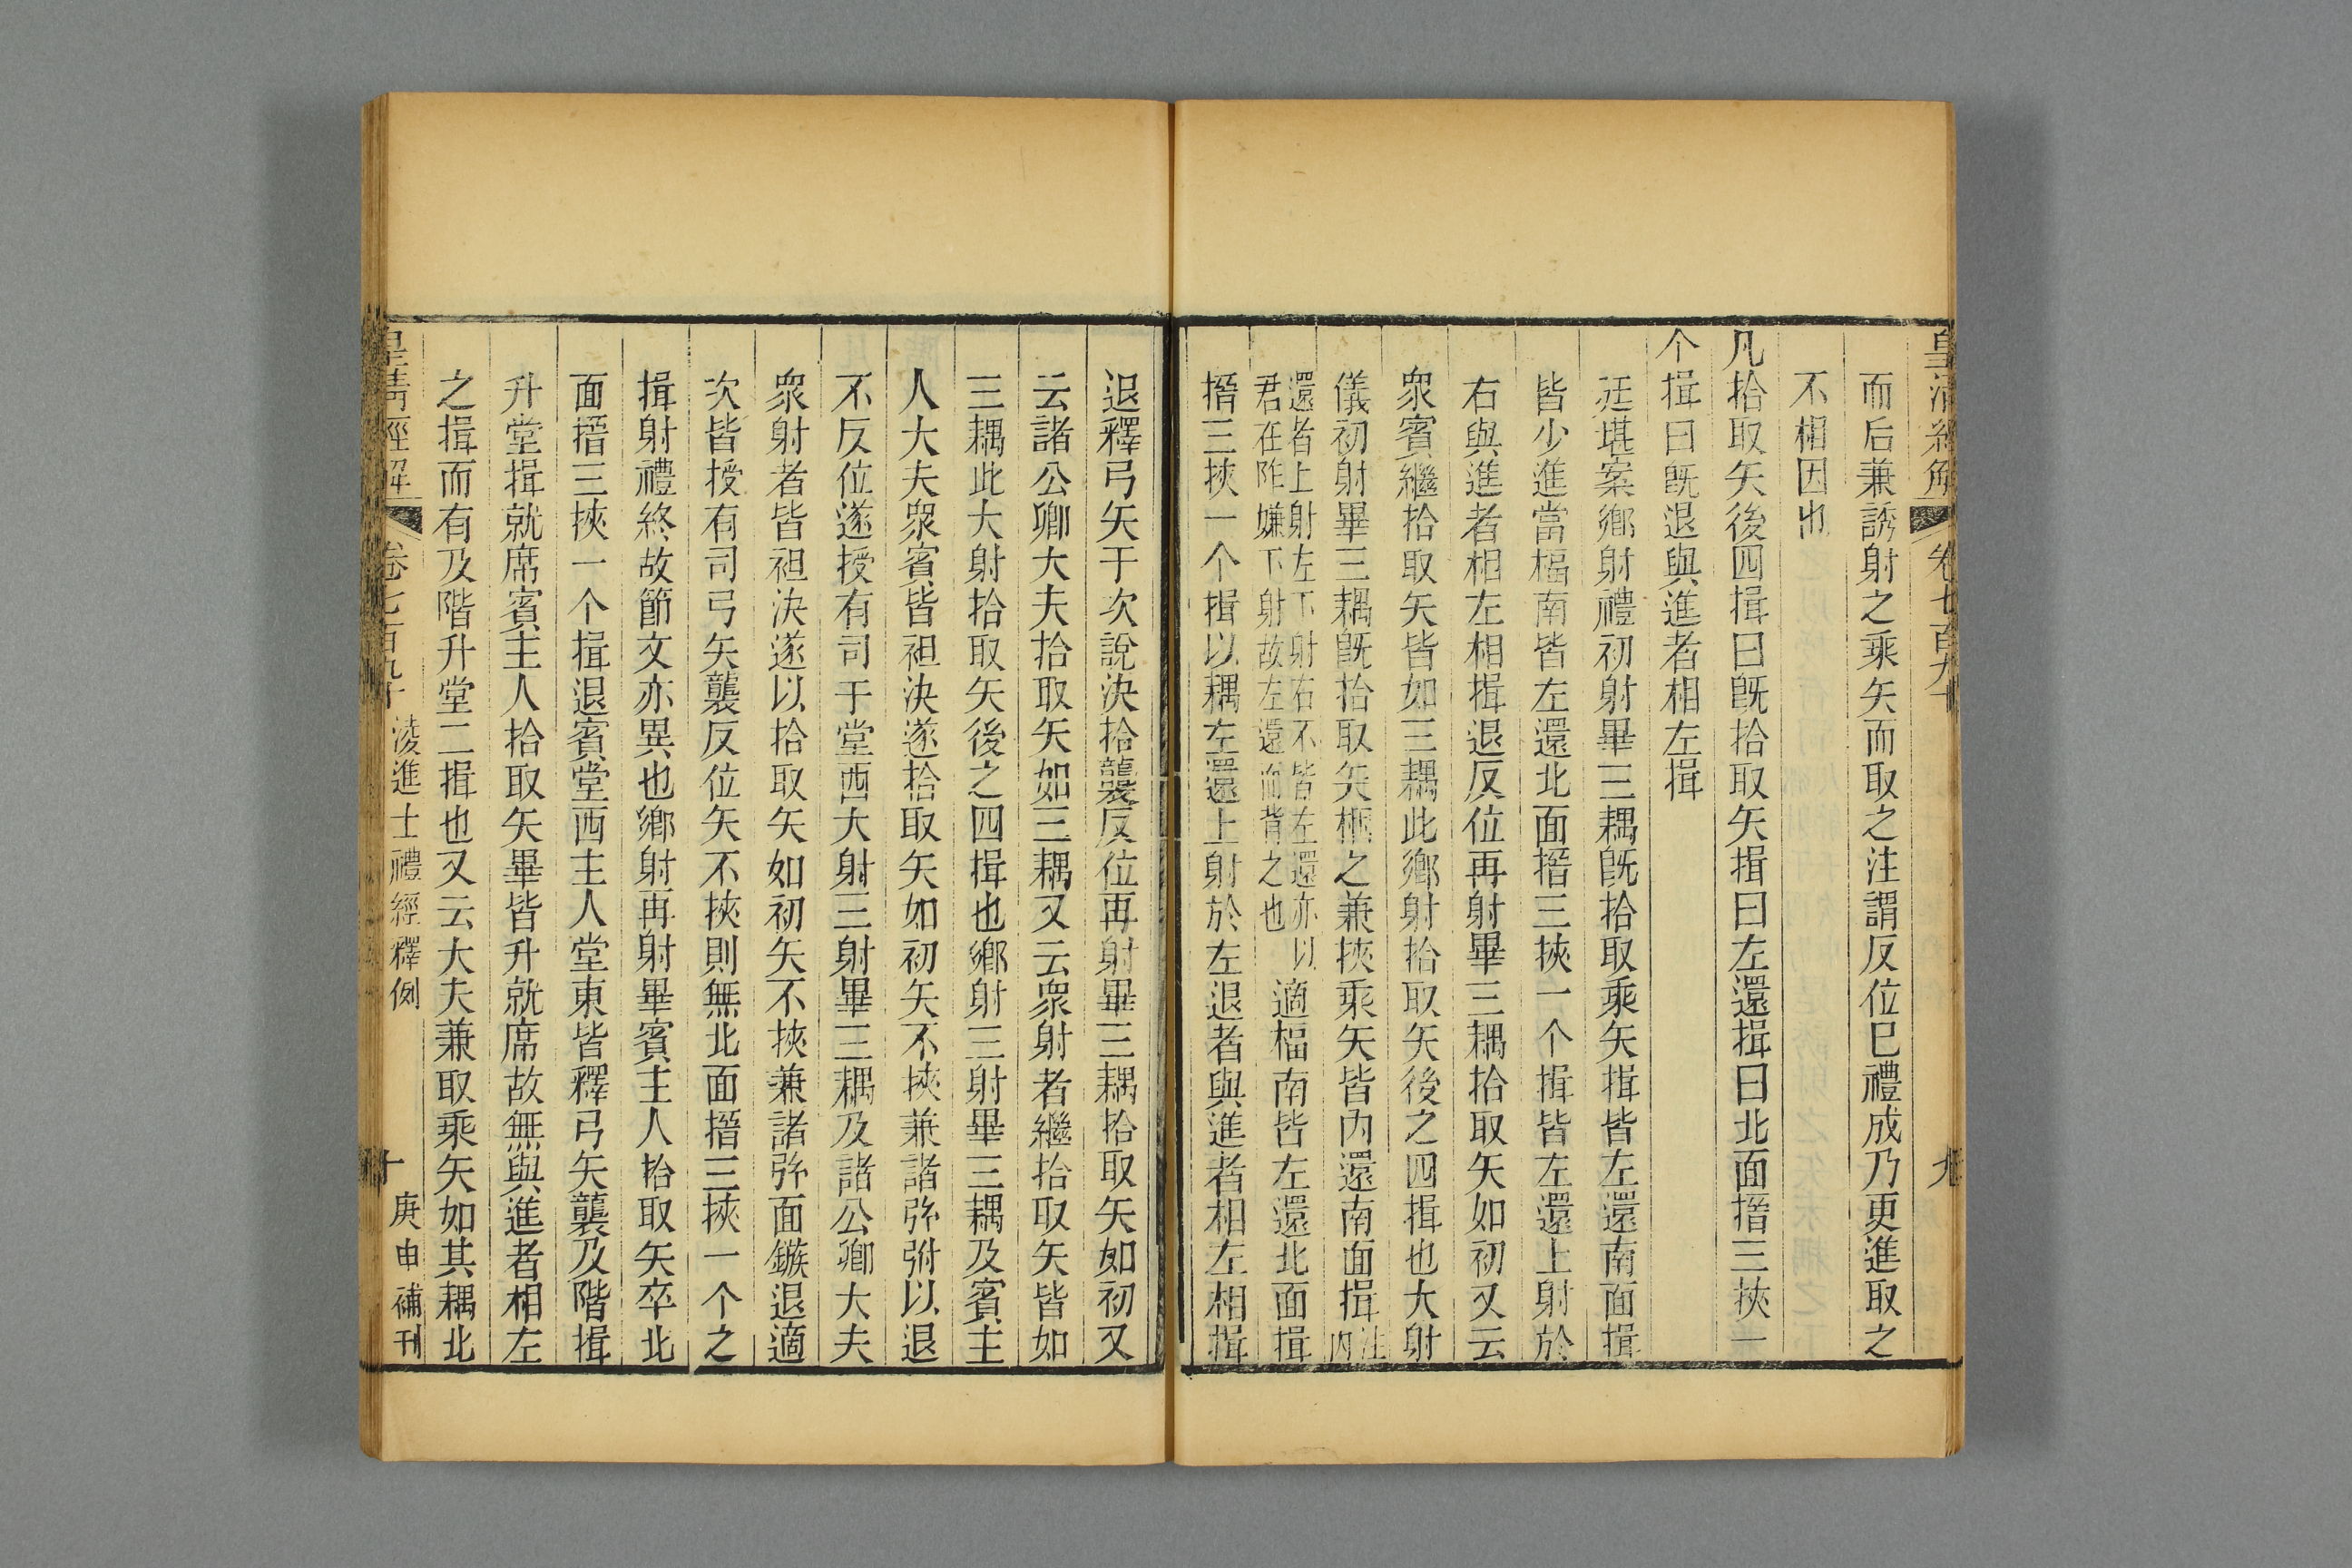 皇清經解 卷七百九十 九
而后兼誘射之乘矢而取之注謂反位已禮成乃更進取之
不相因也
凡拾取矢後四揖曰旣拾取矢揖曰左還揖曰北面搢三挾一
个揖曰旣退與進者相左揖
廷堪案鄉射禮初射畢三耦旣拾取乘矢揖皆左還南面揖
皆少進當楅南皆左還北面搢三挾一个揖皆左還上射於
右與進者相左相揖退反位再射畢三耦拾取矢如初又云
眾賓繼拾取矢皆如三耦此鄉射拾取矢後之四揖也大射
儀初射畢三耦旣拾取矢梱之兼挾乘矢皆內還南面揖注內
還者上射左下射右不皆左還亦以君在阼嫌下射故左還而背之也適楅南皆左還北面揖
搢三挾一个揖以耦左還上射於左退者與進者相左相揖
退釋弓矢于次說決拾襲反位再射畢三耦拾取矢如初又
云諸公卿大夫拾取矢如三耦又云眾射者繼拾取矢皆如
三耦此大射拾取矢後之四揖也鄉射三射畢三耦及賓主
人大夫眾賓皆袒決遂拾取矢如初矢不挾兼諸弣弣以退
不反位遂授有司于堂西大射三射畢三耦及諸公卿大夫
眾射者皆袒決遂以拾取矢如初矢不挾兼諸弣面鏃退適
次皆授有司弓矢襲反位矢不挾則無北面搢三挾一个之
揖射禮終故節文亦異也鄉射再射畢賓主人拾取矢卒北
面搢三挾一个揖退賓堂西主人堂東皆釋弓矢襲及階揖
升堂揖就席賓主人拾取矢畢皆升就席故無與進者相左
之揖而有及階升堂二揖也又云大夫兼取乘矢如其耦北
皇清經解 卷七百九十 淩進士禮經釋例 十 庚申補刊